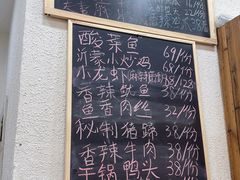 酸菜鱼 69/份
沂蒙小炒鸡 68/份
小龙虾麻辣 128
香辣鱿鱼 38/份
鱼香肉丝 32/份
秘制猪蹄 38/份
香辣牛肉 38/份
干锅鸭头 38/份